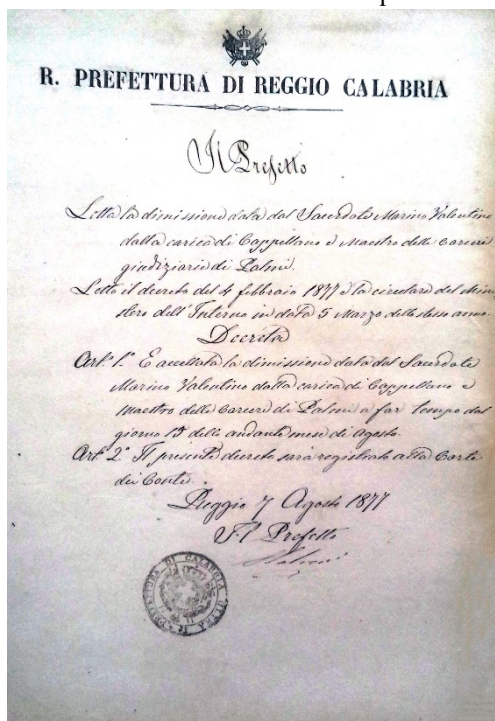 R. PREFETTURA DI REGGIO CALABRIA
Il Prefetto
Letta la dimissione data dal Sacerdote Marino Valentino
dalla carica di Cappellano e Maestro delle Carceri
giudiziarie di Palmi.
Letto il decreto del 4 febbraio 1877 e la circolare del Mini
stero dell'Interno in data 5 Marzo dello stesso anno.
Decreta
Art. 1.° È accettata la dimissione data dal Sacerdote
Marino Valentino dalla carica di Cappellano e
Maestro delle Carceri di Palmi a far tempo dal
giorno 15 dello andante mese di Agosto.
Art. 2.° Il presente decreto sarà registrato alla Corte
dei Conti.
Reggio 7 Agosto 1877
Il Prefetto
PREFETTURA DI CALABRIA ULTRA